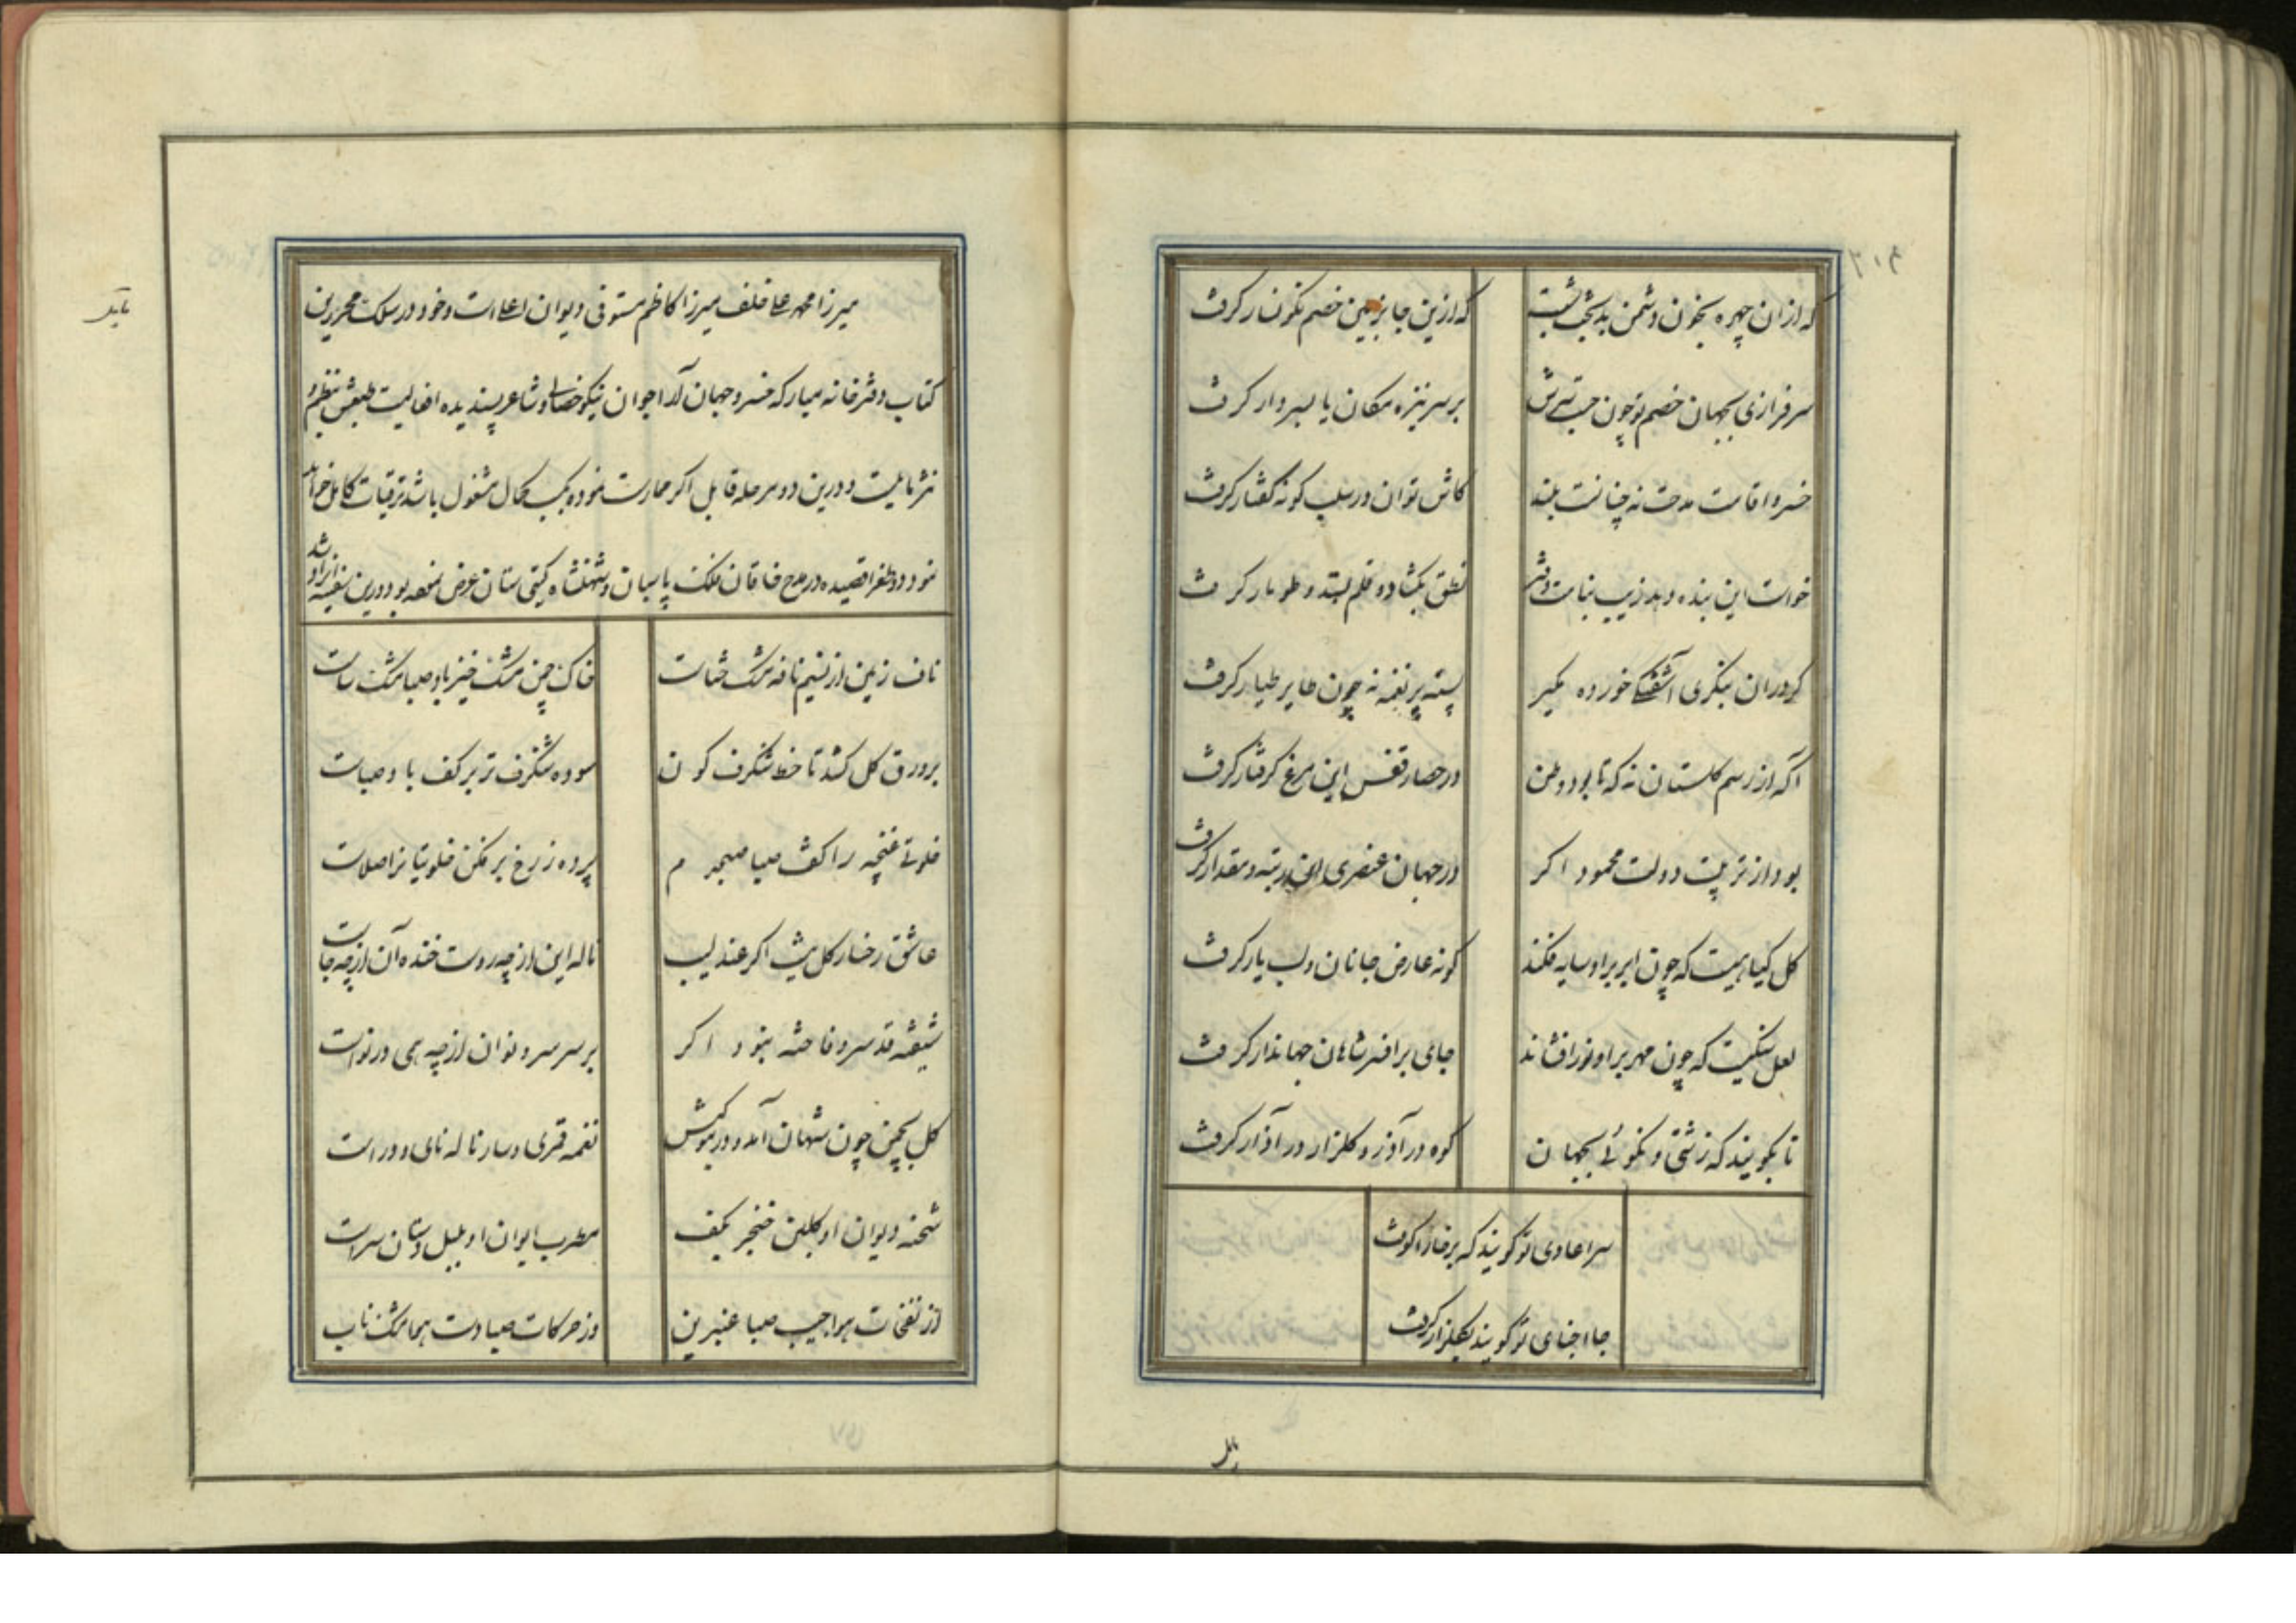 که ازان چهره بخون دشمن بدبخت بشست
که ازین جا بزمین خصم نگونسار گرفت
سرفرازی بجهان خصم تو چون جست سرش
بر سر نیزه مکان یا بسر دار گرفت
خسروا قامت مدحت نه چنانست بلند
کاش توان در سلب کوته گفتار گرفت
خواست این بنده دهد زیب نیابت
نطق بگشاد و قلم بستد و طومار گرفت
گر در ان بنگری آشفتگی خورده مگیر
بسته پر نغمه نه چون طایر طیار گرفت
آگه از رسم گلستان نه که تا بود وطن
در حصار قفس این مرغ گرفتار گرفت
بود از تربیت دولت محمود اگر
در جهان عنصری این رتبه و مقدار گرفت
گل گیاهیست که چون ابر بر او سایه فکند
گونه عارض جانان و لب یار گرفت
لعل سنگیست که چون مهر بر او نور افشاند
جای بر افسر شاهان جهاندار گرفت
تا بگویند که زشتی و نکوئی بجهان
کوه در آذر و گلزار در آذار گرفت
سر اعادی تو گویند که بر خار
جا احبای تو گویند بگلزار گرفت
میرزا محمد علی خلف میرزا کاظم مستوفی دیوان اعلی است و خود در سلک محررین
کتاب دفترخانه مبارکه خسرو جهان آرا جوان نیکو خصالی و شاعر پسندیده افعالیست طبعش بنظم و
نثر مایلست و درین دو مرحله قابل اگر ممارست نموده بکسب کمال مشغول باشد ترقیات کامل خواهد
نمود دو طغرا قصیده در مدح خاقان ملک پاسبان و شهنشاه گیتی ستان عرض نموده بود درین سفینه ایراد شد
ناف زمین از نسیم نافه مشک ختاست
خاک چمن مشک خیز باد صبا مشک ساست
بر ورق گل کشد تا خط شنگرف گون
سوده شنگرف تر بر کف باد صباست
خلوتی غنچه را گفت صبا صبحدم
پرده ز رخ برفکن خلوتیانرا صلاست
عاشق رخسار گل نیست اگر عندلیب
ناله این از چه روست خنده آن از چه جاست
شیفته قد سرو فاخته نبود اگر
بر سر سرو نوان از چه همی در نواست
گل بچمن چون شهان آمد و در
نغمه قمری و سار ناله نای و دراست
شحنه دیوان او گلبن خنجر بکف
مطرب ایوان او بلبل دستان سراست
از نفخات هوا جیب صبا عنبرین
وز حرکات صبا دست هوا مشک ناب